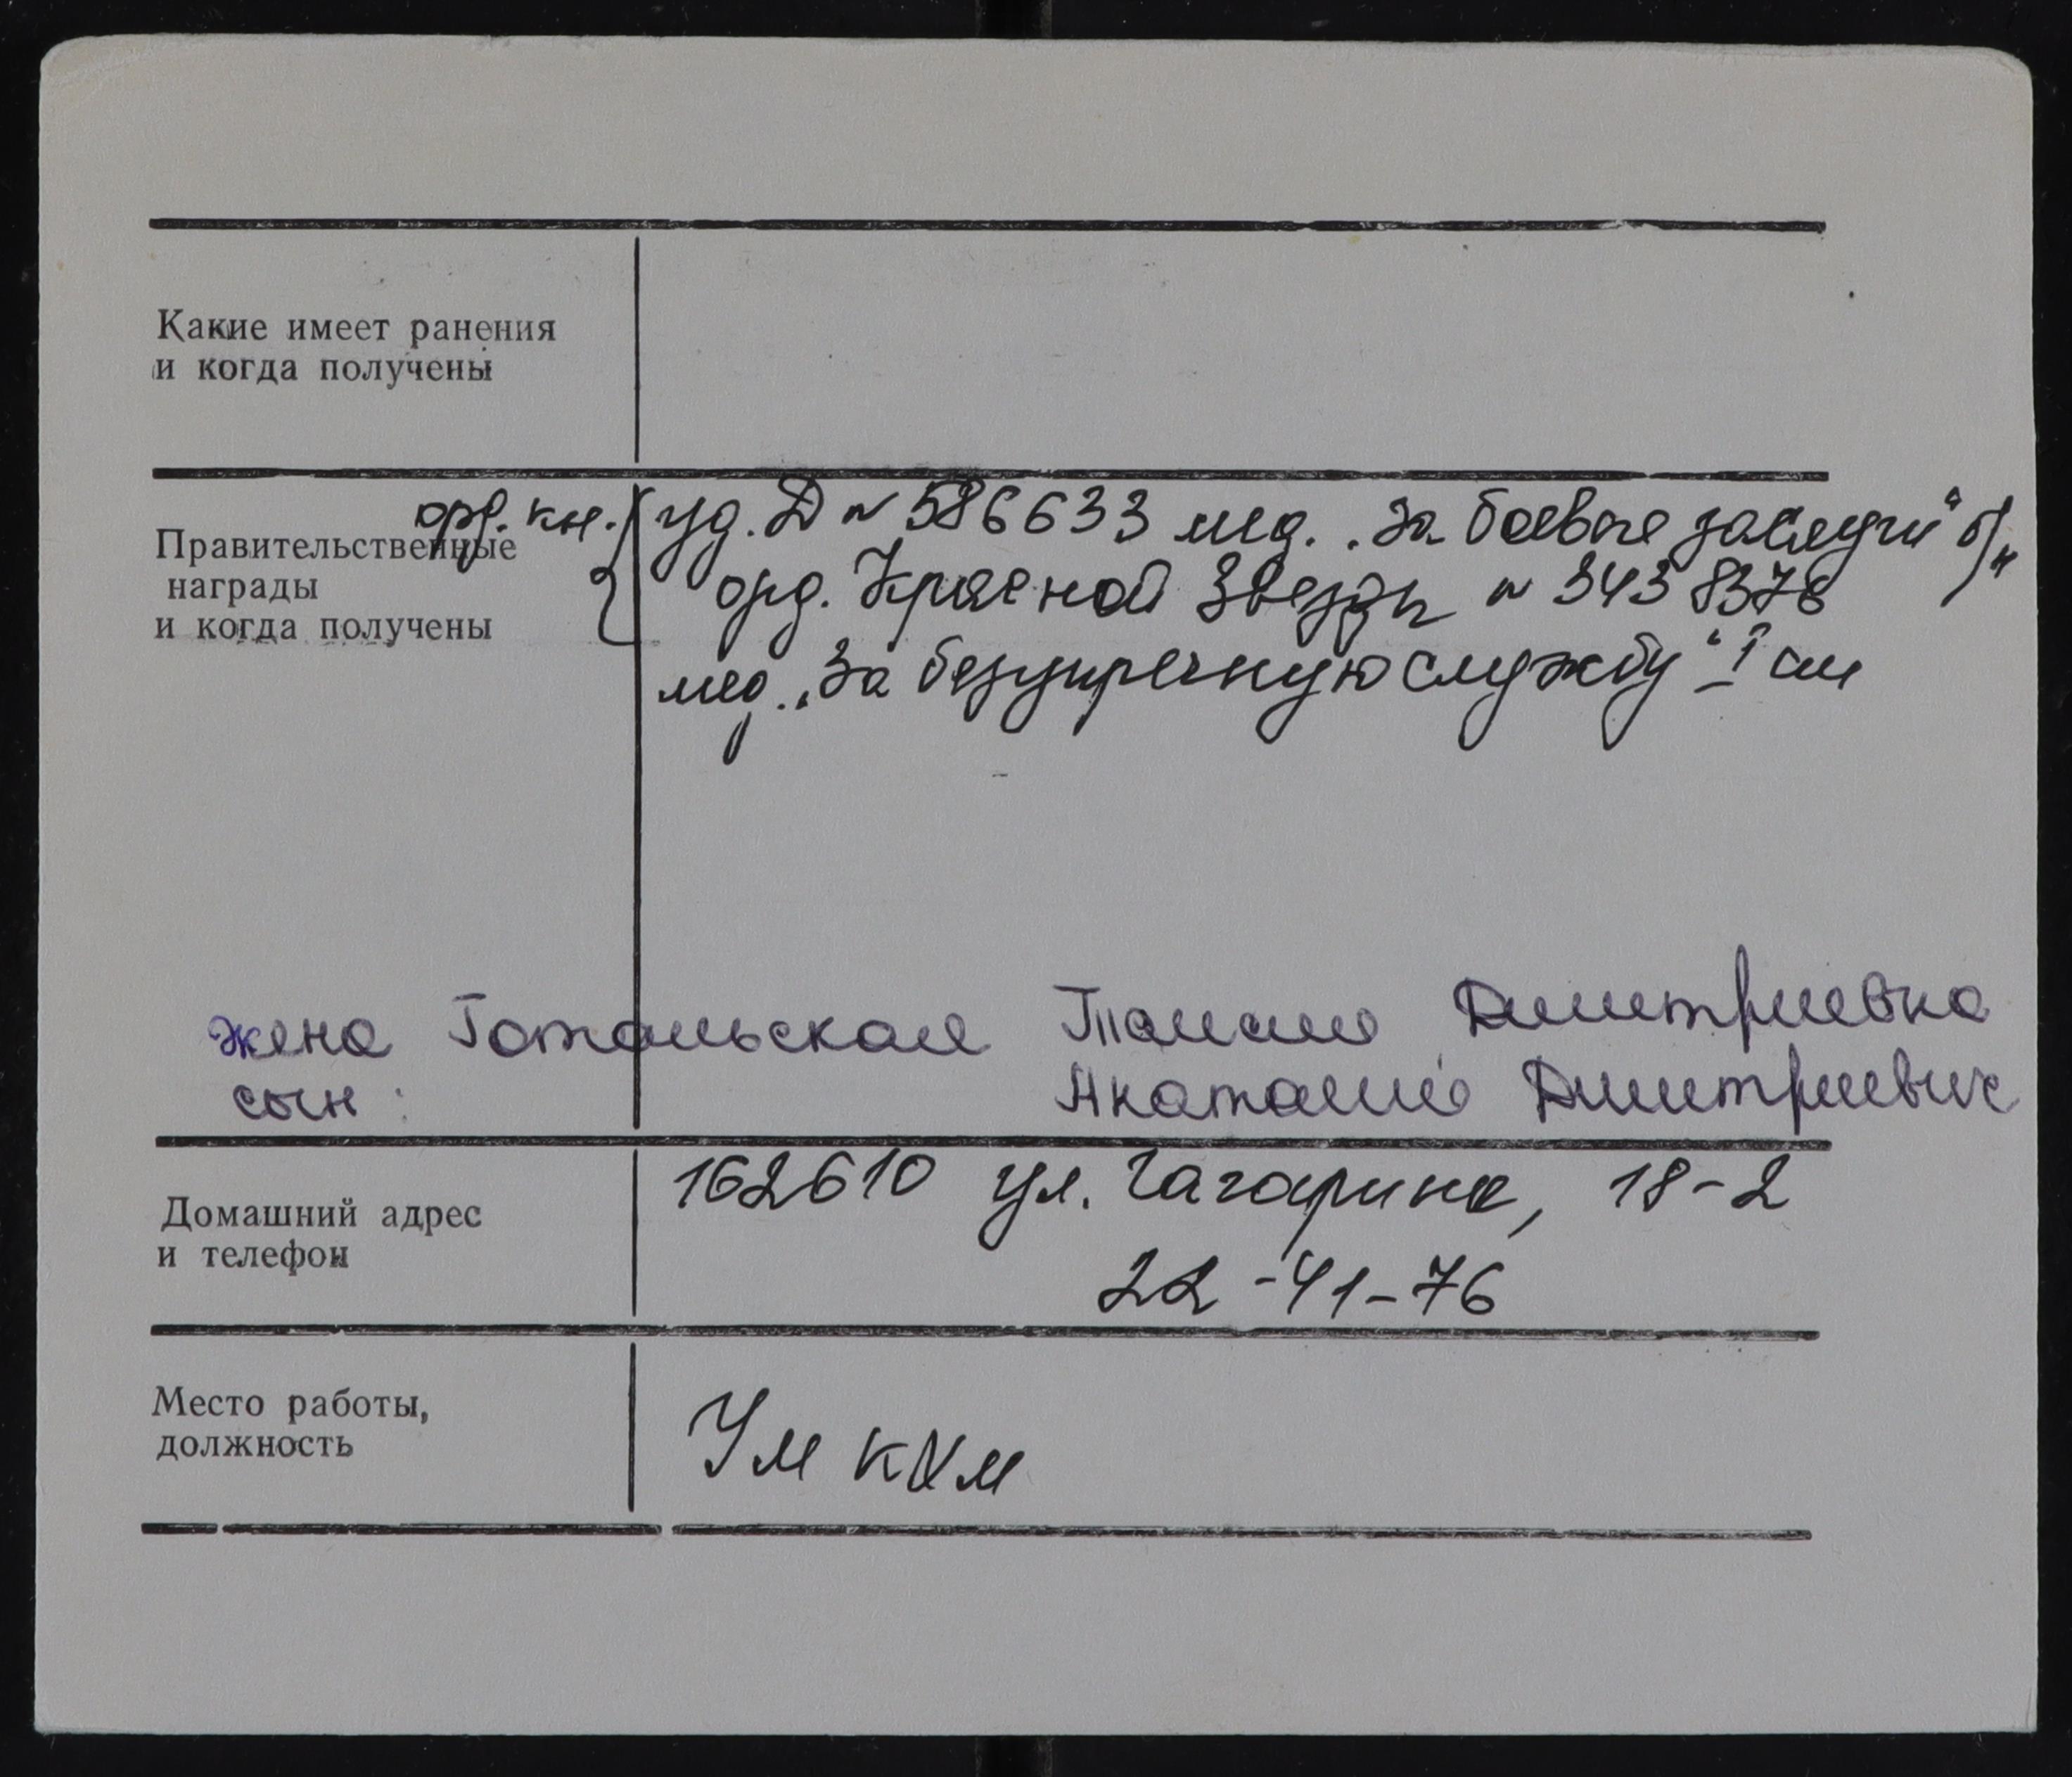 Какие имеет ранения
и когда получены
орд. кн. уд. Д № 586633 мед. „За боевые заслуги“ б/н
Правительственные
награды
и когда получены
орд. Красной Звезды № 3438378
мед. „За безупречную службу“ I
жена Димитриевна
сын: Анатолий Димитриевич
Домашний адрес
и телефон
162610 ул. Гагарина, 18-2
22-41-76
Место работы,
должность